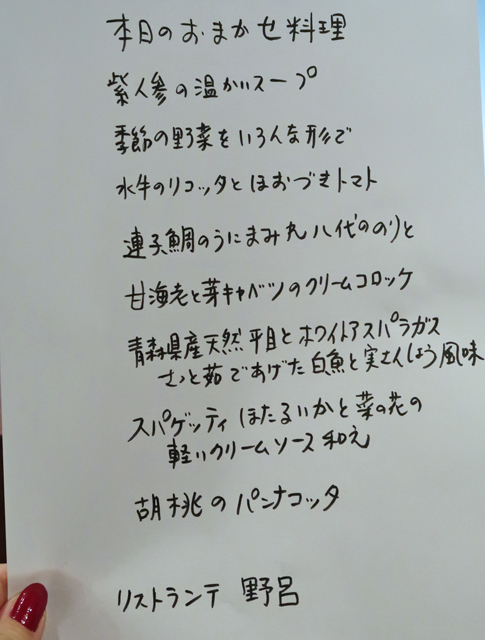 本日のおまかせ料理
紫人参の温かいスープ
季節の野菜をいろんな形で
水牛のリコッタとほおづきトマト
連子鯛のうにまみ丸 八代ののりと
甘海老と芽キャベツのクリームコロッケ
青森県産天然平目とホワイトアスパラガス
さっと茹であげた白魚と実さんしょう風味
スパゲッティ ほたるいかと菜の花の
軽いクリームソース和え
胡桃のパンナコッタ
リストランテ 野呂